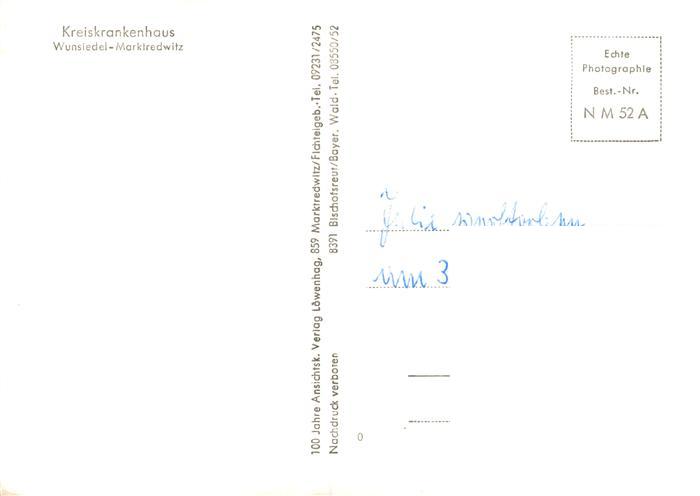 Kreiskrankenhaus
Wunsiedel-Marktredwitz
100 Jahre Ansichtsk. Verlag Löwenhag, 859 Marktredwitz/Fichtelgeb.·Tel. 09231/2475
8391 Bischofsreut/Bayer. Wald·Tel. 08550/52
Nachdruck verboten
0
Echte
Photographie
Best.-Nr.
N M 52 A
3